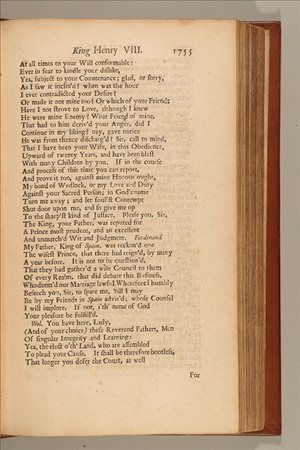 King Henry VIII. 1755
At all times to your Will conformable:
Ever in fear to kindle your dislike,
Yea, subject to your Countenance; glad, or sorry,
As I saw it inclin'd? when was the hour
I ever contradicted your Desire?
Or made it not mine too? Or which of your Friends
Have I not strove to Love, although I knew
He were mine Enemy? What Friend of mine,
That had to him deriv'd your Anger, did I
Continue in my liking? nay, gave notice
He was from thence discharg'd? Sir, call to mind,
That I have been your Wife, in this Obedience,
Upward of twenty Years, and have been blest
With many Children by you. If in the course
And process of this time you can report,
And prove it too, against mine Honour ought,
My bond of Wedlock, or my Love and Duty
Against your Sacred Person; in God's name
Turn me away; and let foul'st Contempt
Shut door upon me, and so give me up
To the sharp'st kind of Justice. Please you, Sir,
The King, your Father, was reputed for
A Prince most prudent, and an excellent
And unmatch'd Wit and Judgment. Ferdinand
My Father, King of Spain, was reckon'd one
The wisest Prince, that there had reign'd, by many
A year before. It is not to be question'd,
That they had gather'd a wise Council to them
Of every Realm, that did debate this Business,
Who deem'd our Marriage lawful. Wherefore I humbly
Beseech you, Sir, to spare me, 'till I may
Be by my Friends in Spain advis'd; whose Counsel
I will implore. If not, i'th' name of God
Your pleasure be fulfill'd.
Wol. You have here, Lady,
(And of your choice) these Reverend Fathers, Men
Of singular Integrity and Learning:
Yea, the elect o'th' Land, who are assembled
To plead your Cause. It shall be therefore bootless,
That longer you defer the Court, as well
For